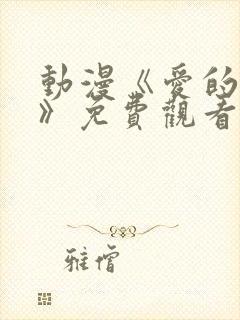 動漫《愛的
》免費觀看
雅僧